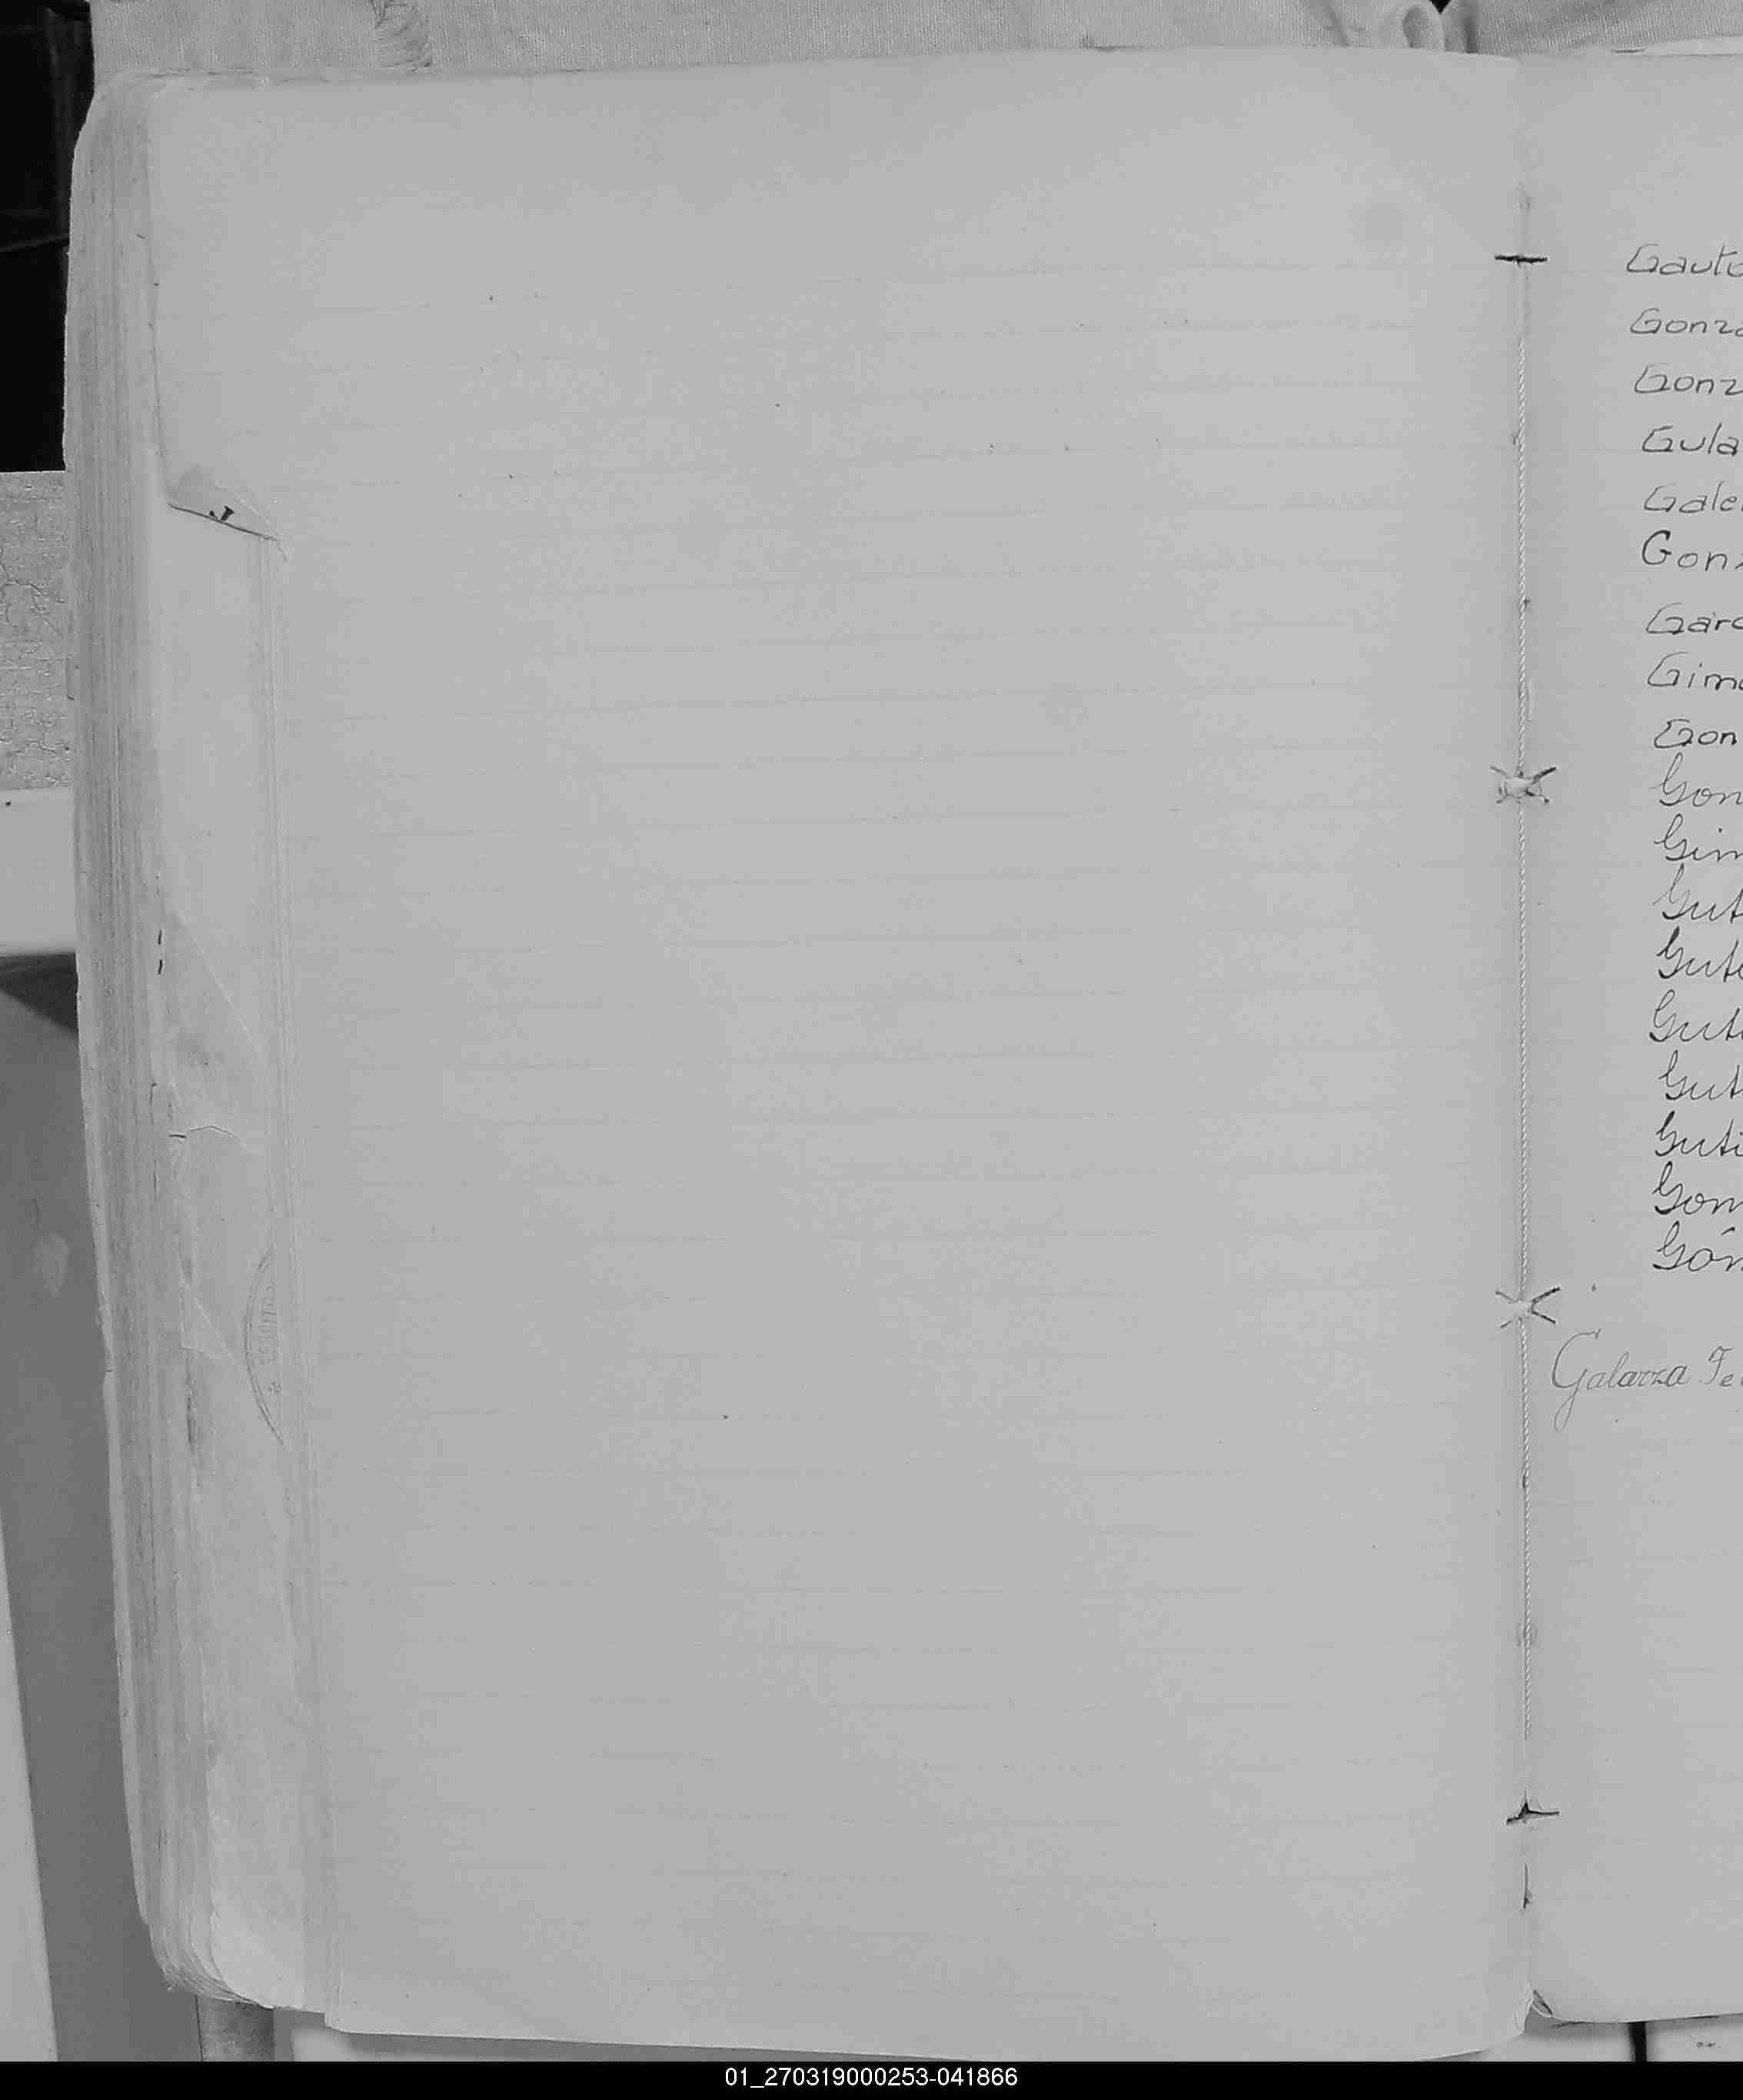 Gauto
Gonza
Gonz
Gula
Gale
Gonz
Garc
Gim
Gon
Gon
Gim
Gut
Gut
Gut
Gut
Guti
Gom
Góm
Galarza Fe
01_270319000253-041866